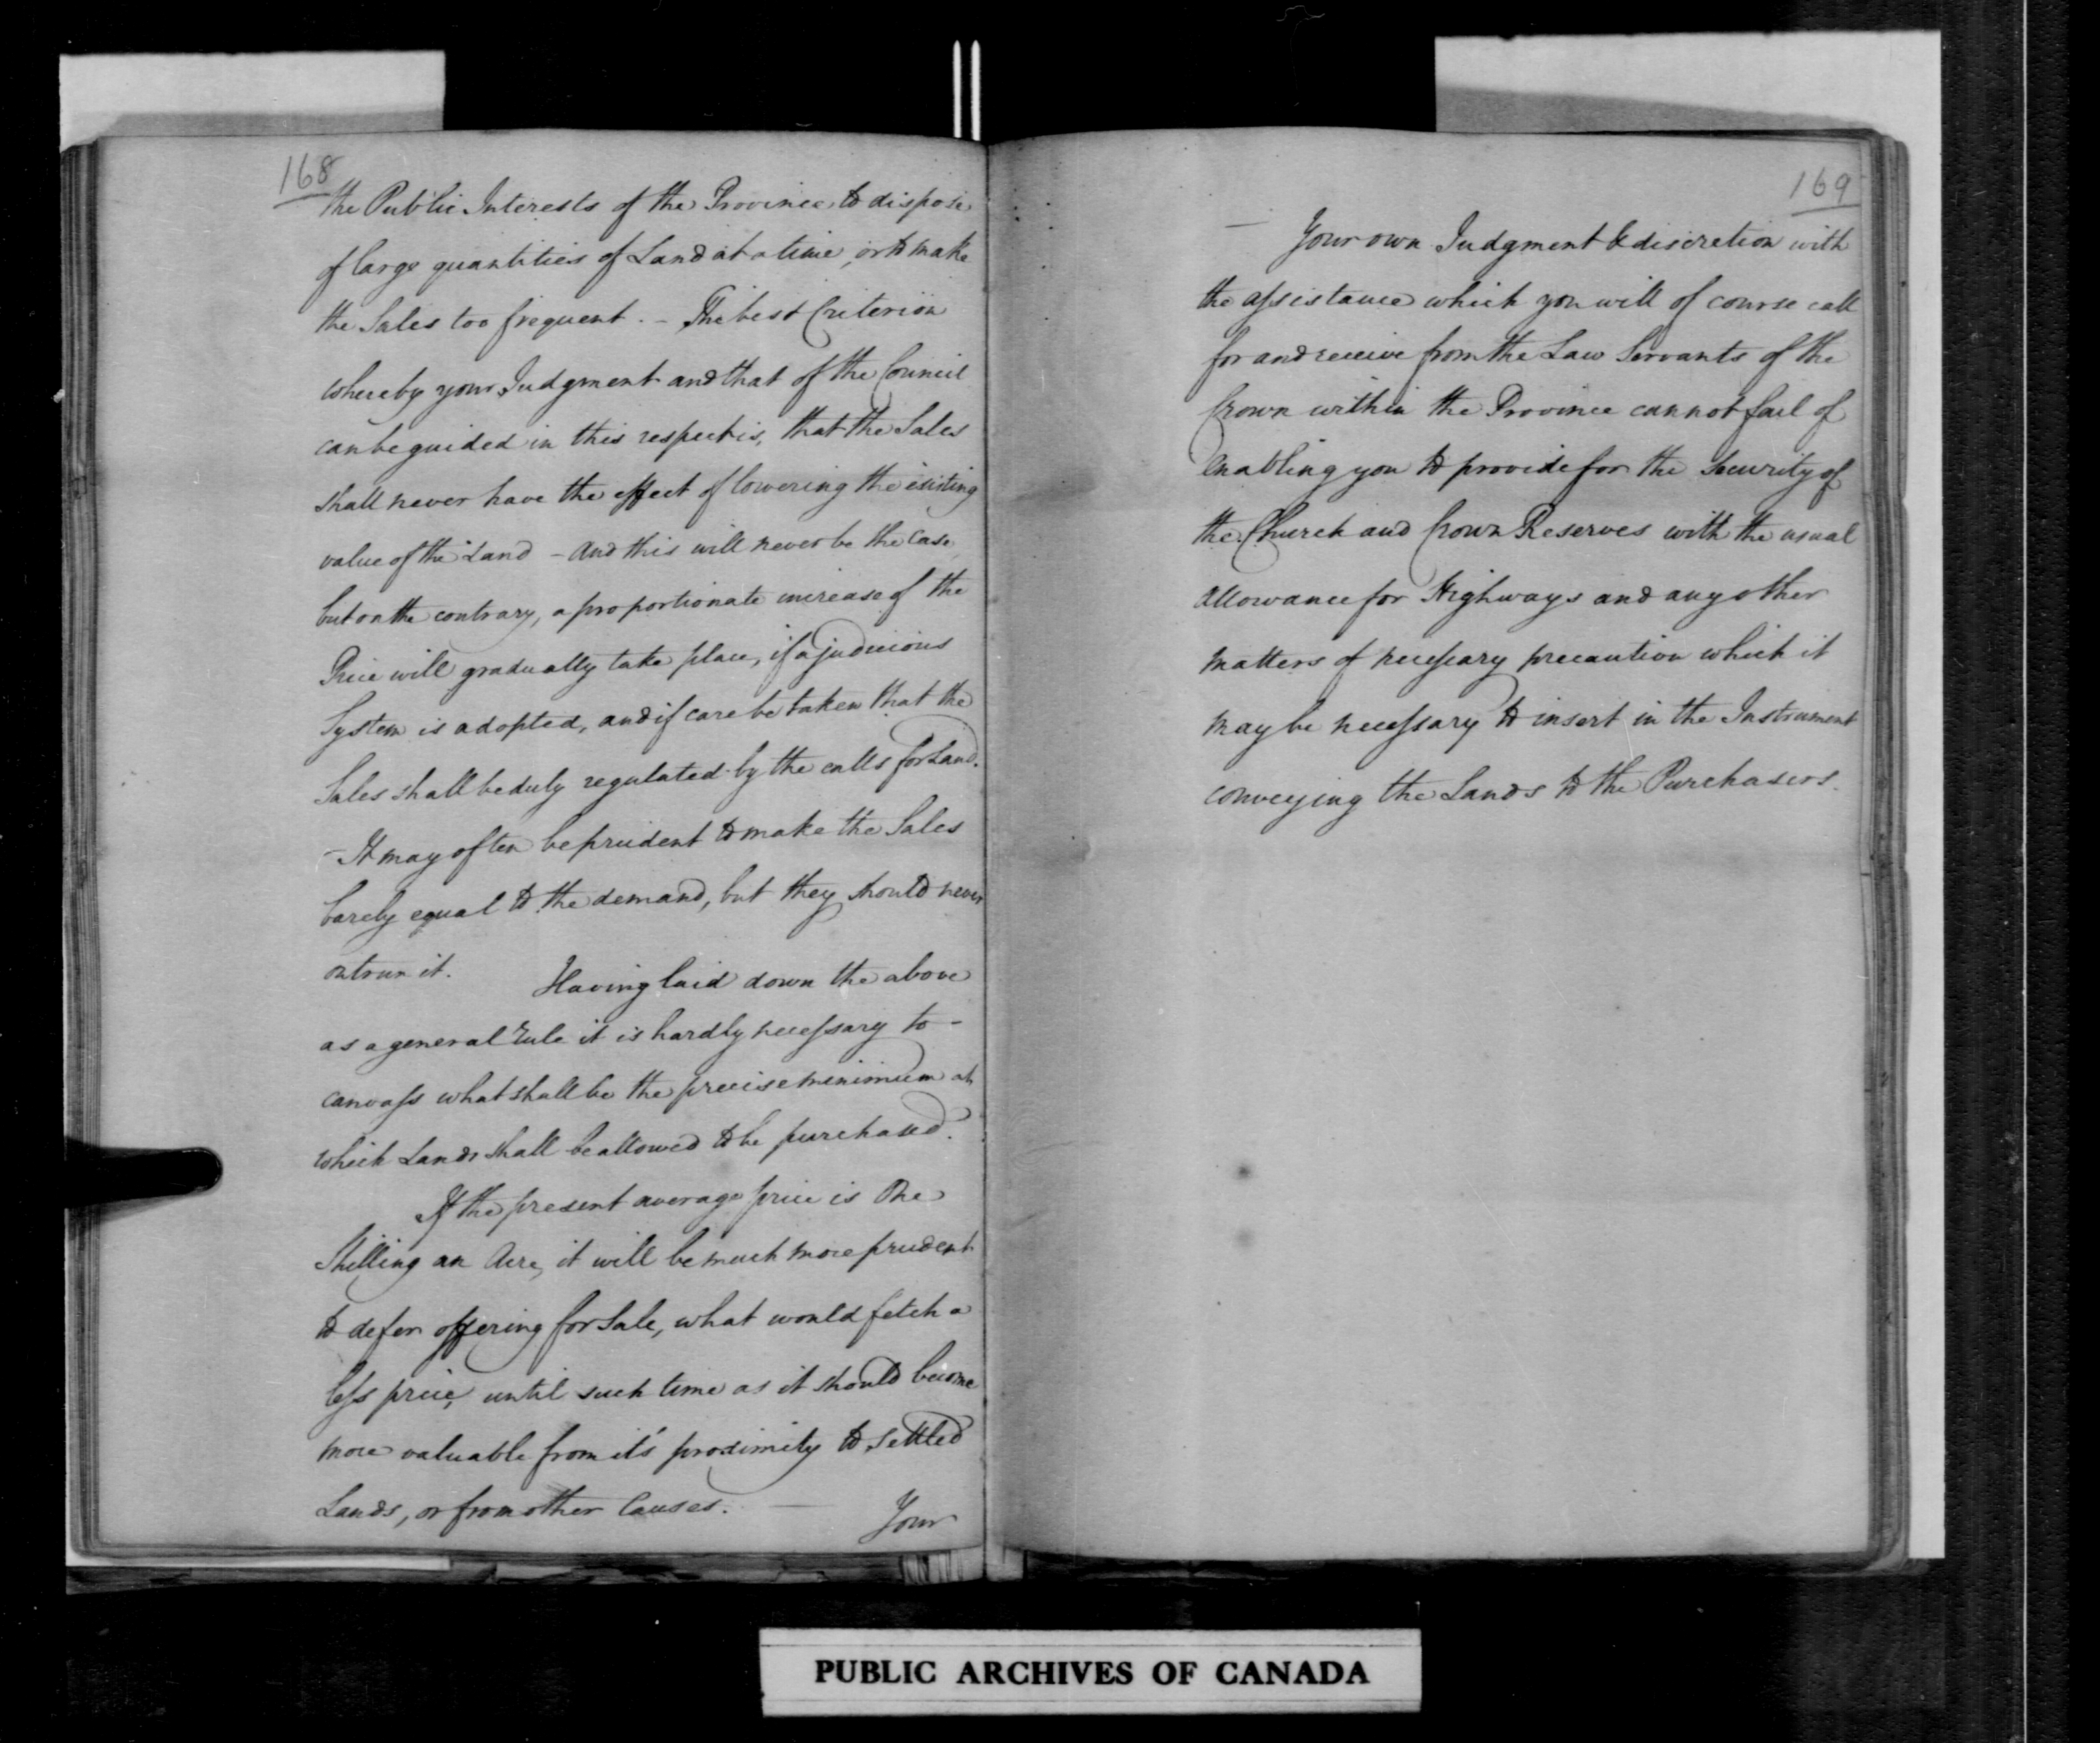 168
the Public Interests of the Province to dispose
of large quantities of Land at a time, or to make
the Sales too frequent. – The best Criterion
whereby your Judgment and that of the Council
can be guided in this respect is, that the Sales
shall never have the effect of lowering the existing
value of the Land – And this will never be the Case
but on the contrary, a proportionate increase of the
Price will gradually take place, if a judicious
System is adopted, and if care be taken that the
Sales shall be duly regulated by the calls for Land.
– It may often be prudent to make the Sales
barely equal to the demand, but they should never
outrun it. Having laid down the above
as a general rule it is hardly necessary to –
canvass what shall be the precise minimum at
which Lands shall be allowed to be purchased.
If the present average price is One
Shilling an Acre, it will be much more prudent
to defer offering for Sale, what would fetch a
less price, until such time as it should become
more valuable from it's proximity to settled
Lands, or from other Causes. —
Your
169
— Your own Judgment & discretion with
the assistance which you will of course call
for and receive from the Law Servants of the
Crown within the Province cannot fail of
enabling you to provide for the security of
the Church and Crown Reserves with the usual
allowance for Highways and any other
matters of necessary precaution which it
may be necessary to insert in the Instrument
conveying the Lands to the Purchasers.
PUBLIC ARCHIVES OF CANADA